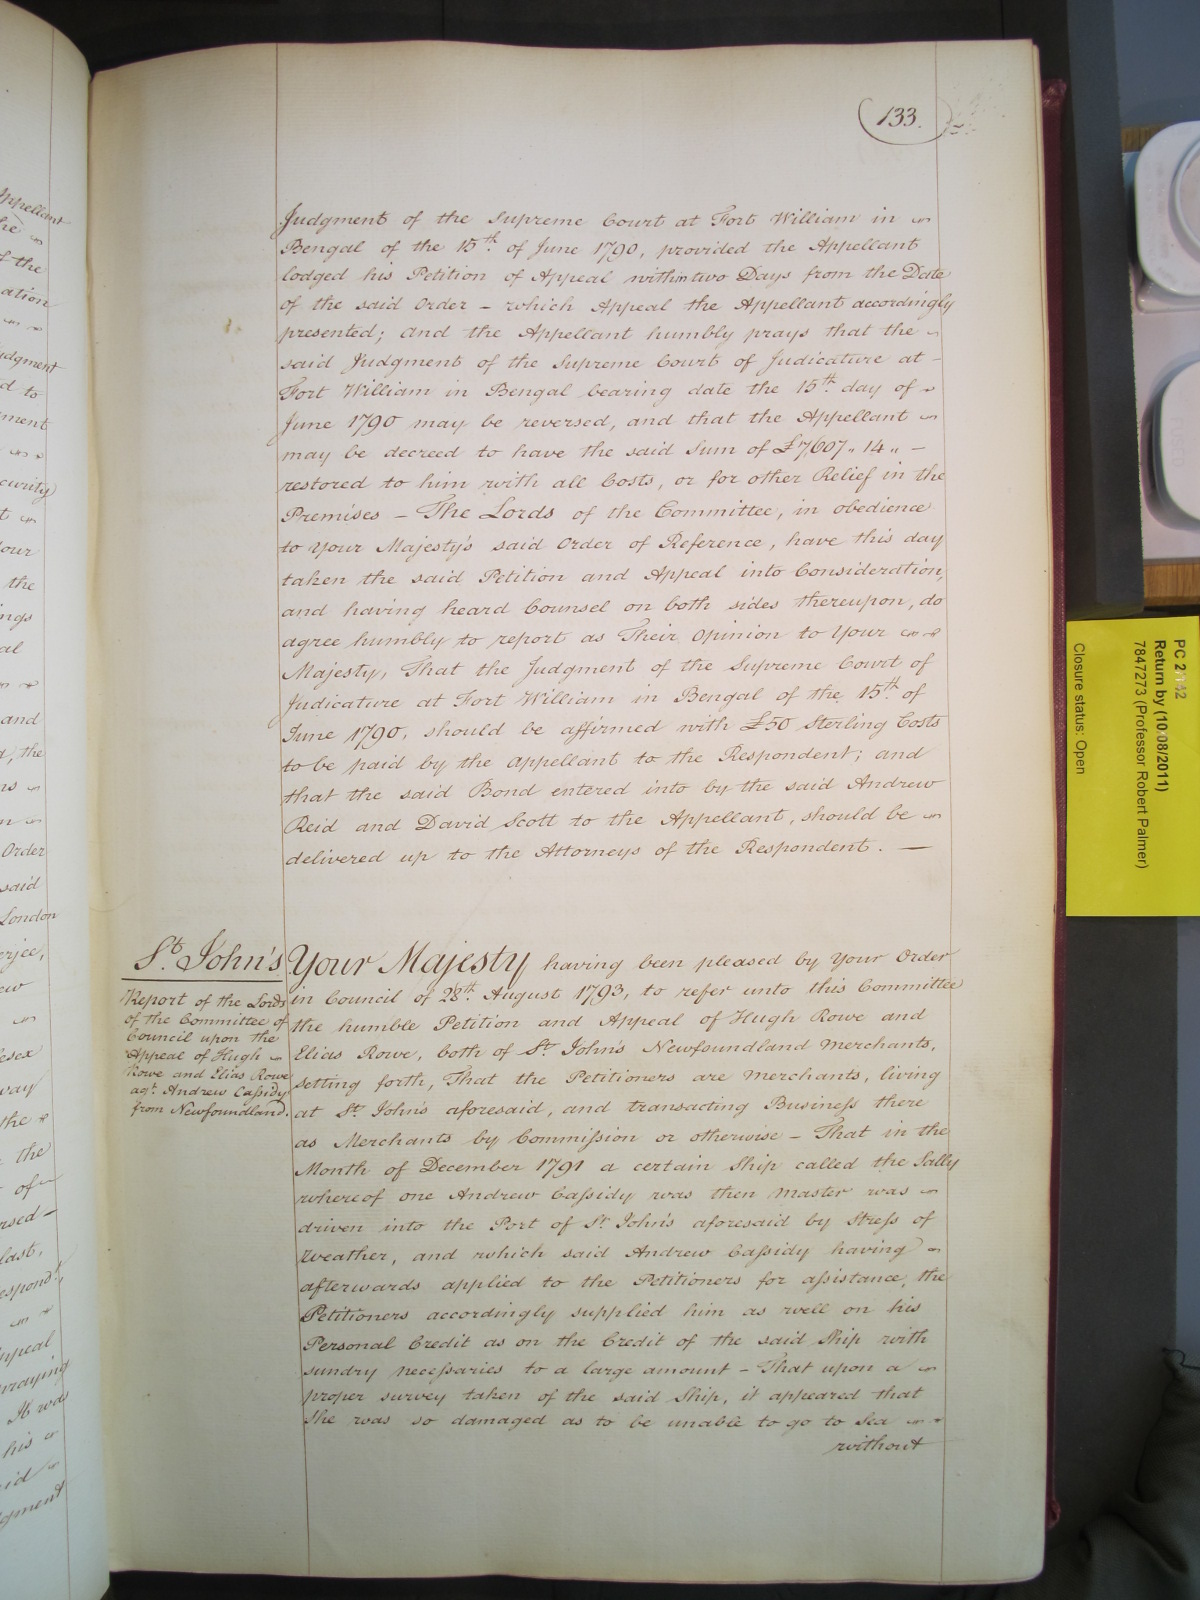 133.
Judgment of the Supreme Court at Fort William in
Bengal of the 15th. of June 1790, provided the Appellant
lodged his Petition of Appeal within two Days from the Date
of the said Order – which Appeal the Appellant accordingly
presented; and the Appellant humbly prays that the
said Judgment of the Supreme Court of Judicature at –
Fort William in Bengal bearing date the 15th. day of
June 1790 may be reversed, and that the Appellant
may be decreed to have the said Sum of £7,607,, 14,, –
restored to him with all Costs, or for other Relief in the
Premises – The Lords of the Committee, in obedience
to Your Majesty's said Order of Reference, have this day
taken the said Petition and Appeal into Consideration,
and having heard Counsel on both sides thereupon, do
agree humbly to report as Their Opinion to Your
Majesty, That the Judgment of the Supreme Court of
Judicature at Fort William in Bengal of the 15th. of
June 1790, should be affirmed with £50 Sterling Costs
to be paid by the Appellant to the Respondent; and
that the said Bond entered into by the said Andrew
Reid and David Scott to the Appellant, should be
delivered up to the Attorneys of the Respondent. —
St. John's
Report of the Lords
of the Committee of
Council upon the
Appeal of Hugh
Rowe and Elias Rowe
agt. Andrew Cassidy
from Newfoundland.
Your Majesty having been pleased by Your Order
in Council of 28th. August 1793, to refer unto this Committee
the humble Petition and Appeal of Hugh Rowe and
Elias Rowe, both of St. John's Newfoundland Merchants,
setting forth, That the Petitioners are Merchants, living
at St. John's aforesaid, and transacting Business there
as Merchants by Commission or otherwise – That in the
Month of December 1791 a certain Ship called the Sally
whereof one Andrew Cassidy was then Master was
driven into the Port of St. John's aforesaid by Stress of
Weather, and which said Andrew Cassidy having
afterwards applied to the Petitioners for assistance, the
Petitioners accordingly supplied him as well on his
Personal Credit as on the Credit of the said Ship with
sundry necessaries to a large amount – That upon a
proper survey taken of the said Ship, it appeared that
She was so damaged as to be unable to go to Sea
without
PC 2/142
Return by (10/08/2011)
7847273 (Professor Robert Palmer)
Closure status: Open
Appellant
the
of the
ation
Judgment
d to
ment
curity
t
our
the
ings
al
and
the
Order
said
London
of
rsed –
last,
Appeal
praying
It was
his
id
gment